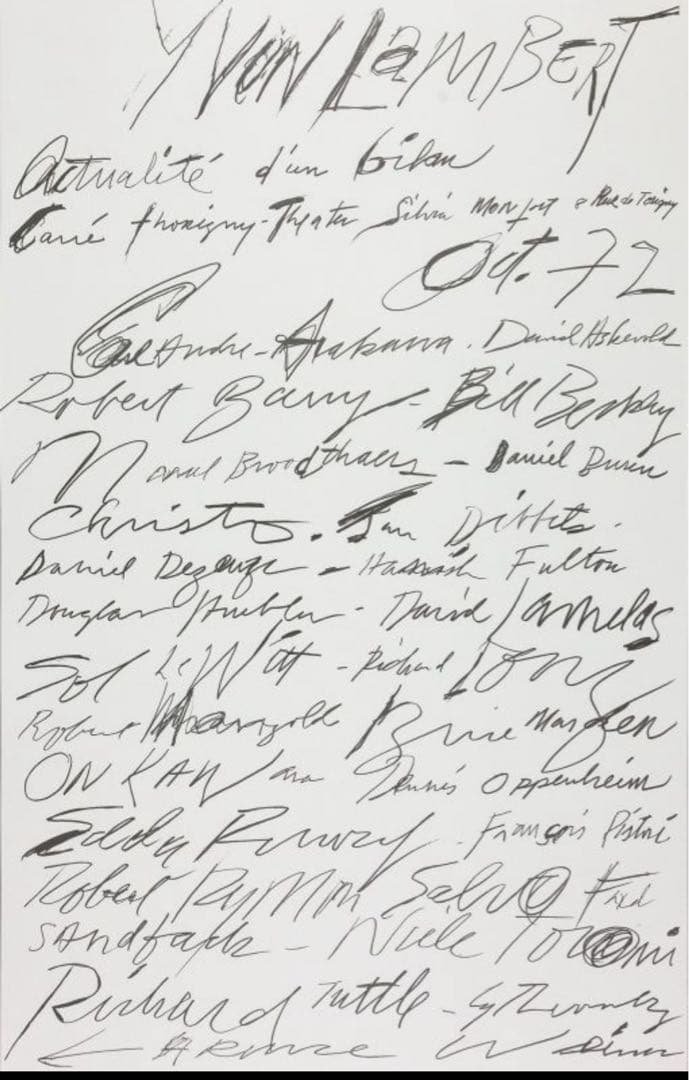 YVON LAMBERT
Actualité d'un bilan
Carré Thorigny-Theater Silvia Monfort
Oct. 72
Carl Andre - Arakawa. David Askevold
Robert Barry - Bill Beckley
Marcel Broodthaers - Daniel Buren
Christo. Jan Dibbets.
Daniel Dezeuze - Hamish Fulton
Douglas Huebler - David Lamelas
Sol LeWitt - Richard Long
Robert Mangold Brice Marden
ON KAWara Dennis Oppenheim
Edda Renouf. François Ristori
Robert Ryman Salvo Fred
SAndback - Niele Toroni
Richard Tuttle - Cy Twombly
LAwrence Weiner